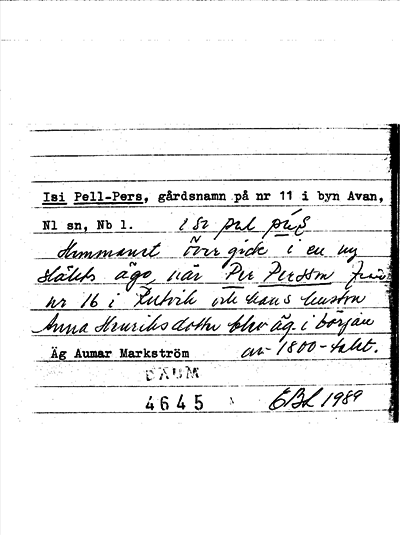 Isi Pell-Pers, gårdsnamn på nr 11 i byn Avan,
Nl sn, Nb l.
Hemmanet övergick i en ny
släkts ägo, när Per Persson från
nr 16 i Rutvik och hans hustru
Anna Henriksdotter blev äg. i början
Äg Aumar Markström av 1800-talet.
DAUM
4645 EBL 1989